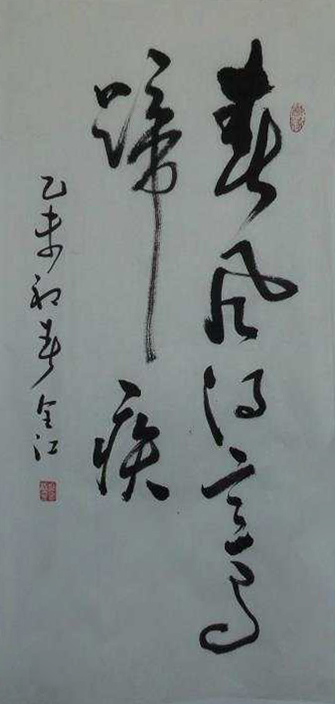 春风得意马
蹄疾
乙未初春 金江